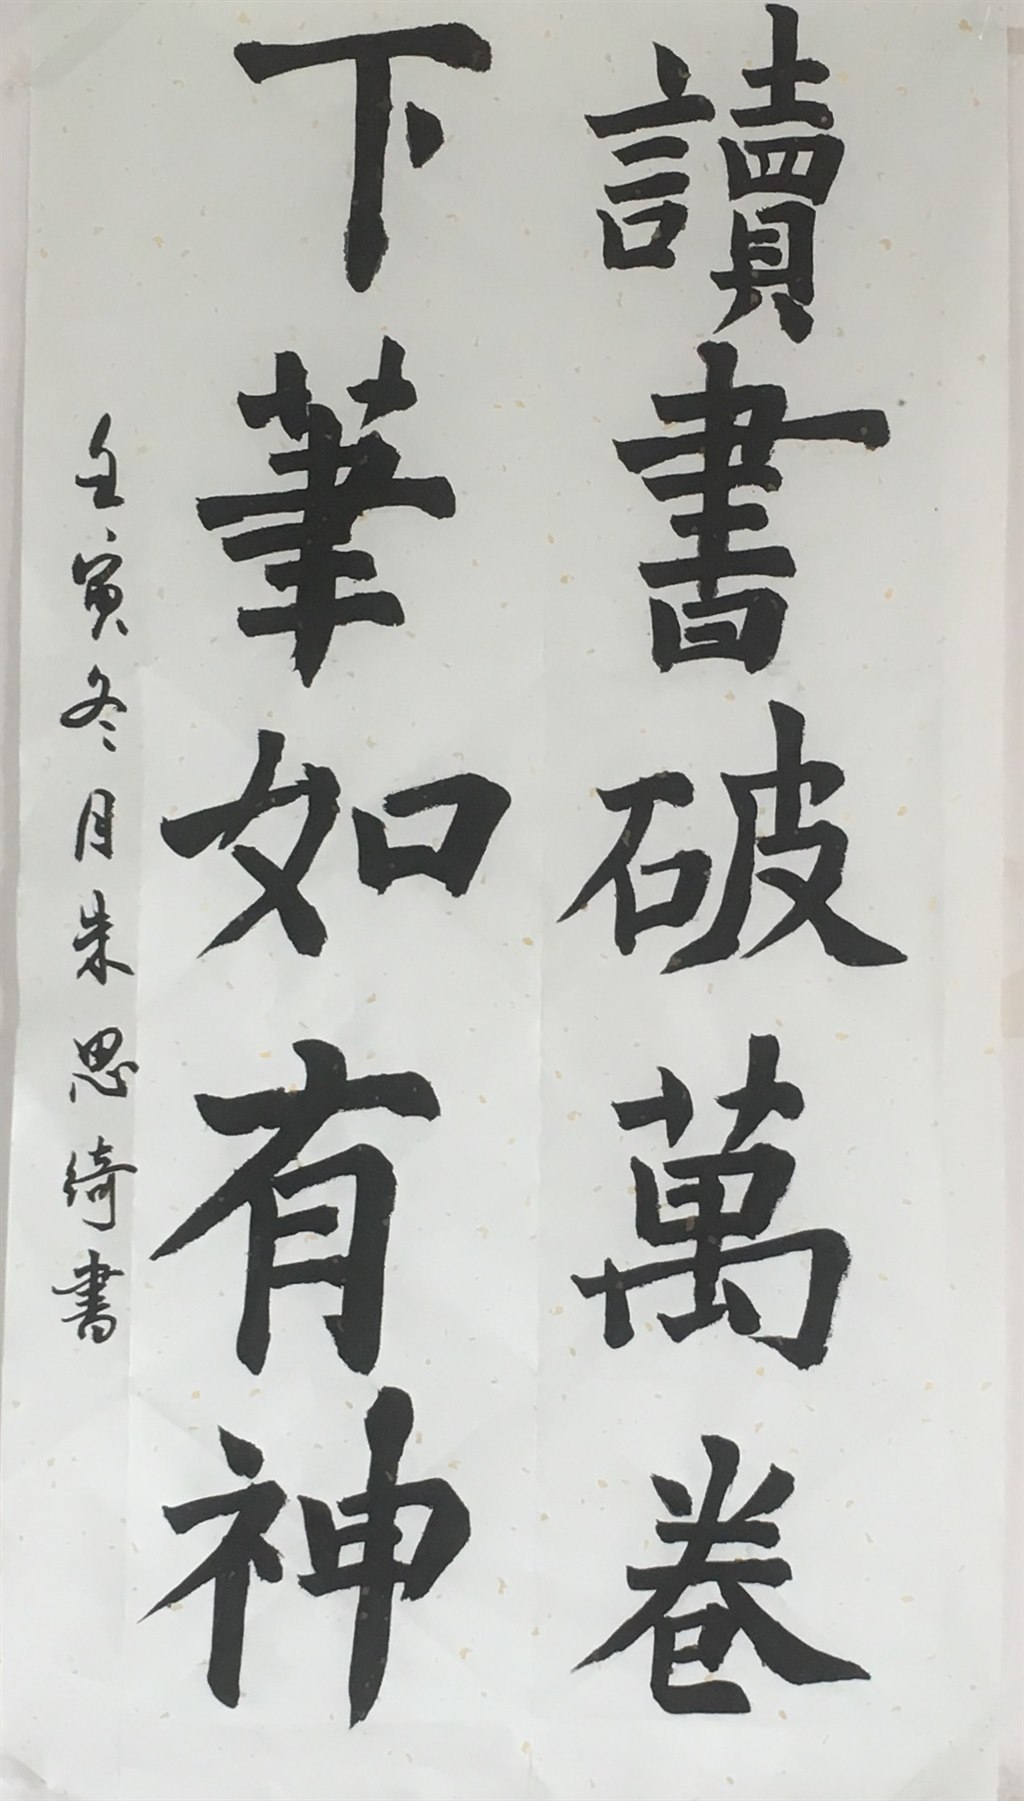 讀書破萬卷
下筆如有神
壬寅冬月朱思綺書